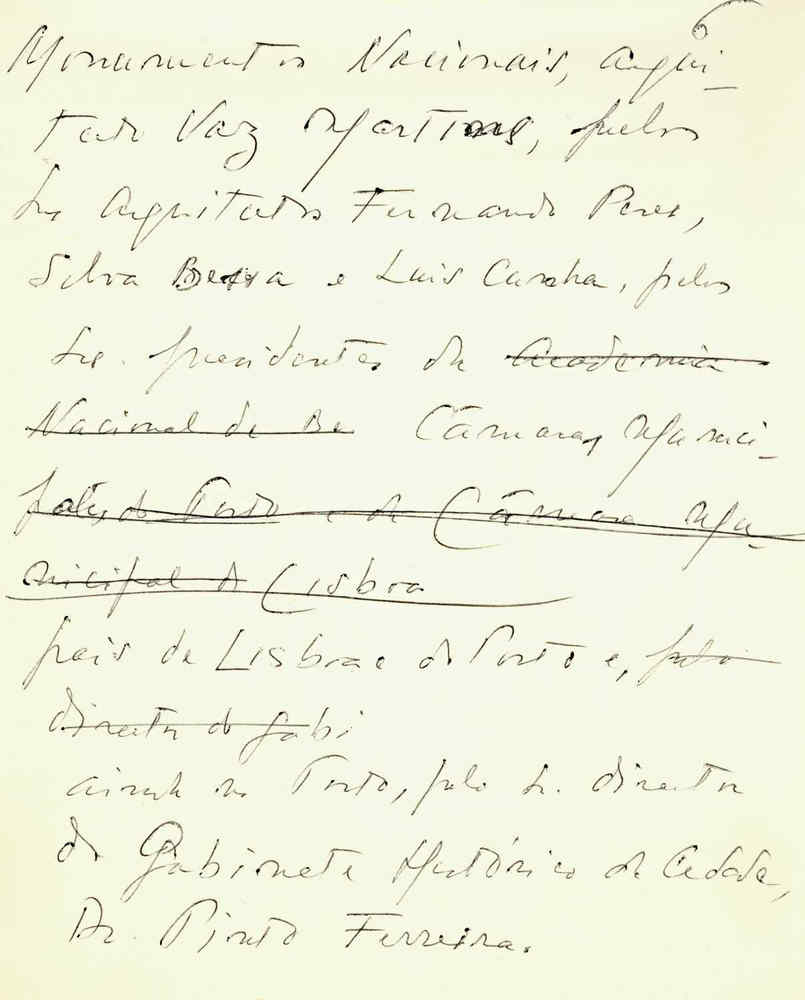 6
Monumentos Nacionais, arqui-
tecto Vaz Martins, pelos
Srs Arquitectos Fernando Peres,
Silva Bessa e Luis Cunha, pelos
Srs. presidentes da Academia
Nacional de Be Câmaras Munici-
pales do Porto e da Câmara Mu-
nicipal de Lisboa
pais de Lisboa e do Porto e, pelo
director do Gabi
ainda no Porto, pelo Sr. director
do Gabinete Histórico da Cidade,
Dr. Pinto Ferreira.